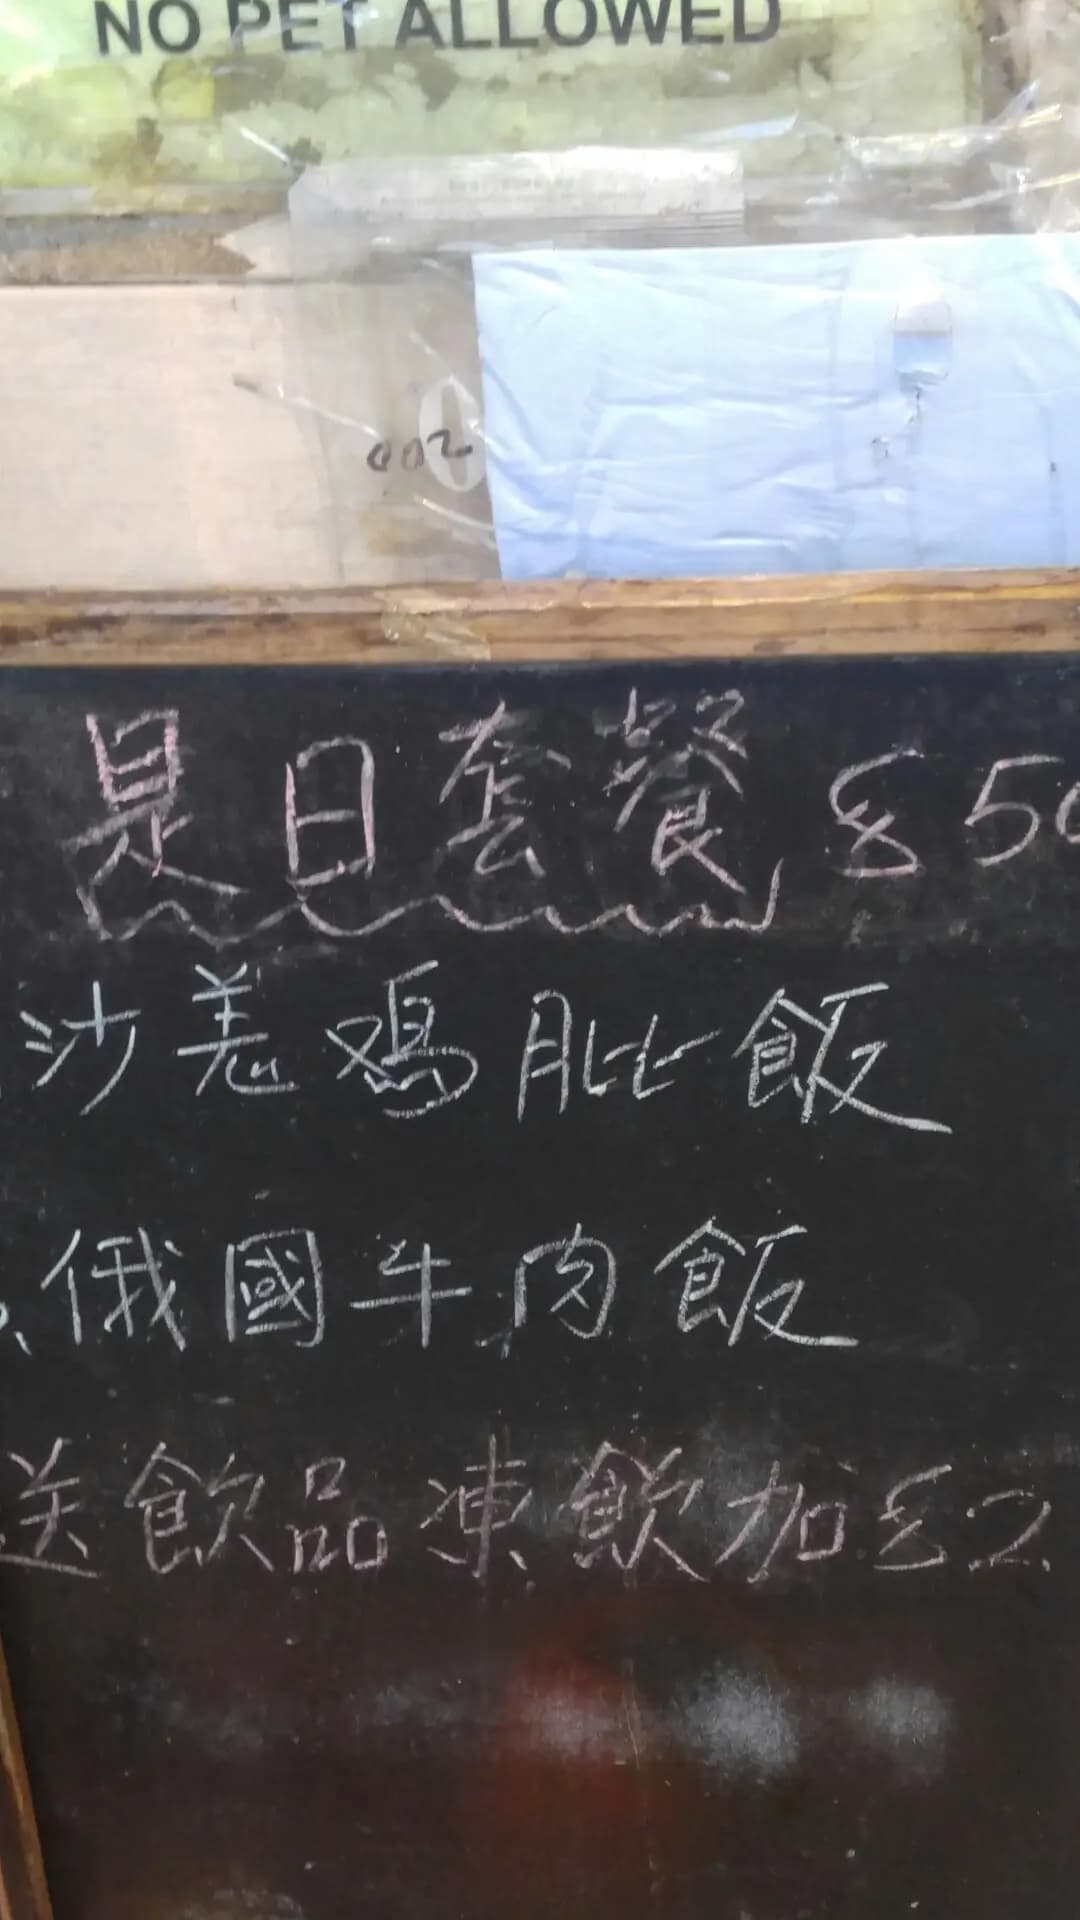 NO PET ALLOWED
002
是日套餐 $50
沙羌鸡肶飯
俄國牛肉飯
送飲品凍飲加$2